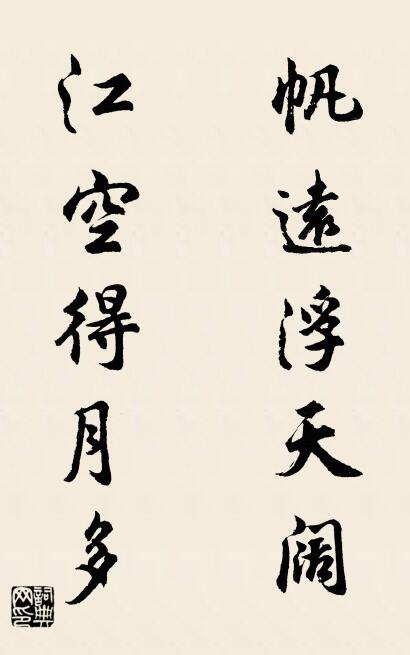 帆遠浮天阔
江空得月多
詞典网印